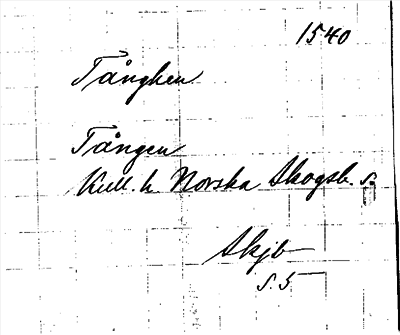 1540
Tånghen
Tången
Kull. h. Norska Skogsb. s.
Skjb
s. 5